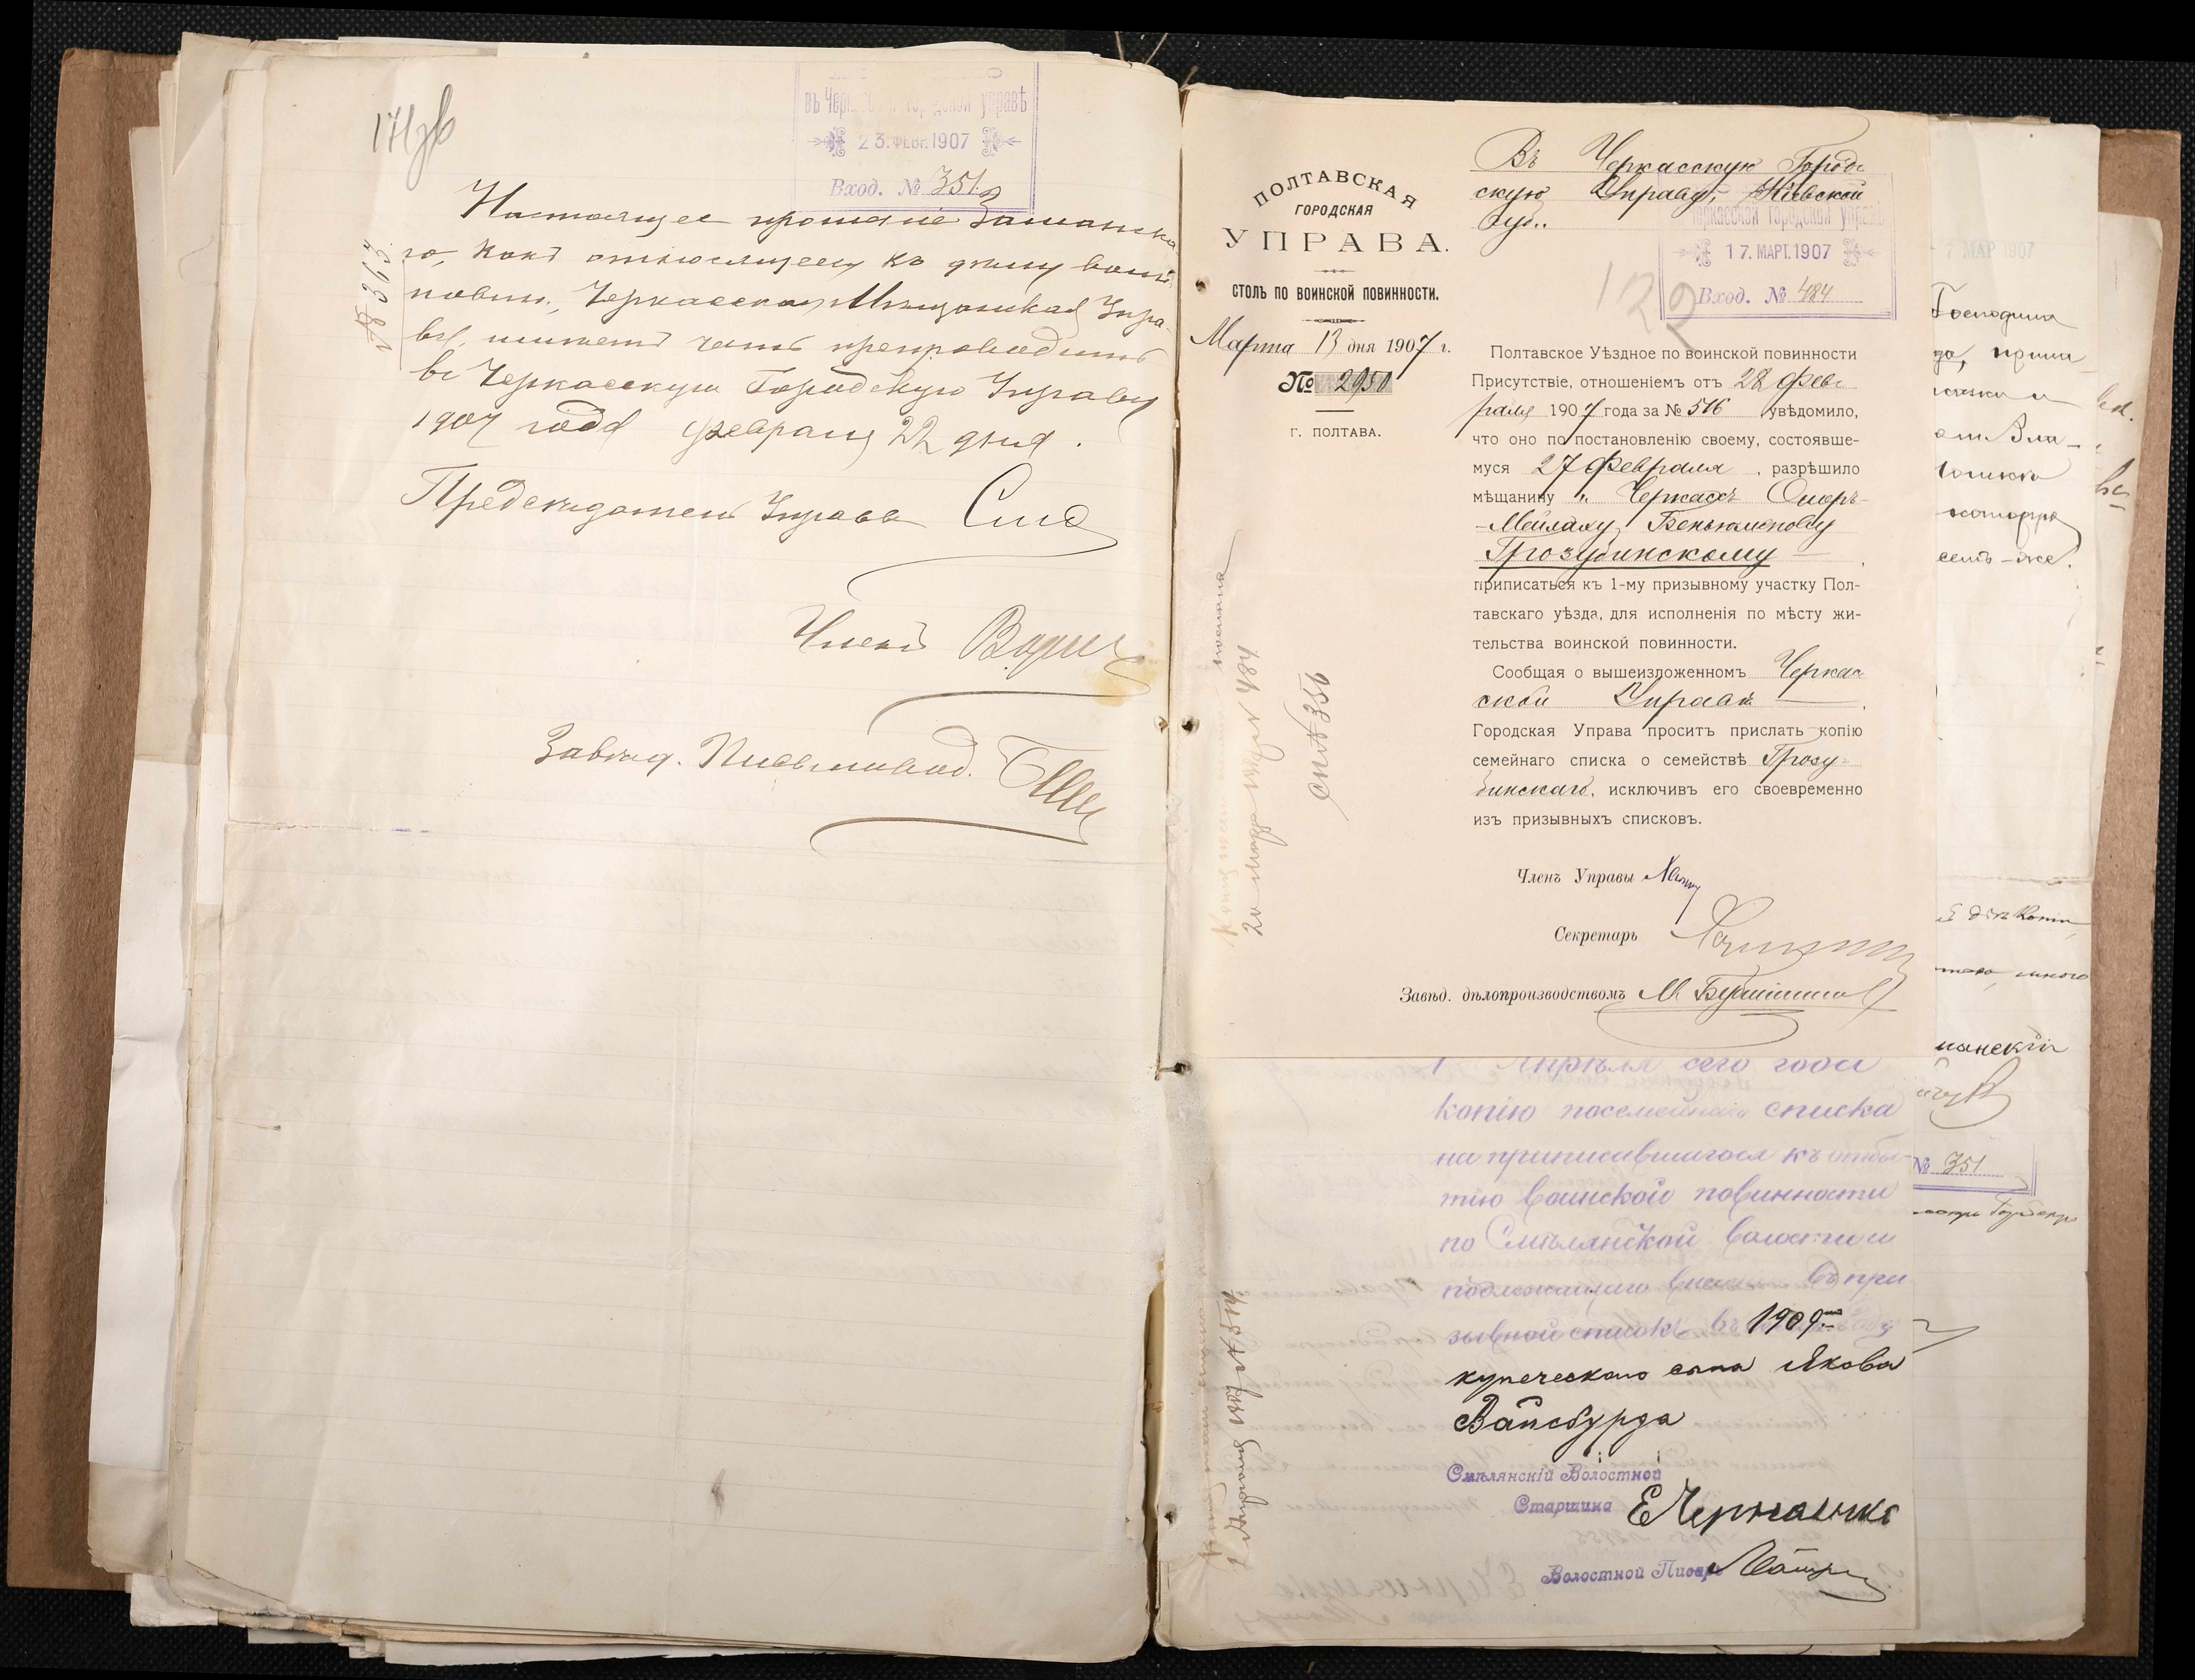 въ Черкасской городской управѣ
23.ФЕВР.1907
Вход. № 351
Настоящее прошеніе
го, какъ относящееся къ дѣлу воин.
повин., Черкасская Мѣщанская Упра-
ва, имѣетъ честь препроводить
въ Черкасскую Городскую Управу
1907 года февраля 22 дня.
Предсѣдатель Управы
Членъ
Завѣд. Письмовод.
№ 393
ПОЛТАВСКАЯ
ГОРОДСКАЯ
УПРАВА.
СТОЛЪ ПО ВОИНСКОЙ ПОВИННОСТИ.
Марта 13 дня 1907 г.
№ 2950
г. ПОЛТАВА.
Въ Черкасскую Город-
скую Управу, Кіевской
Губ..
Черкасской городской управѣ
17. МАРТ.1907
Вход. № 484
122
Полтавское Уѣздное по воинской повинности
Присутствіе, отношеніемъ отъ 28 Фев-
раля 1907 года за № 516 увѣдомило,
что оно по постановленію своему, состоявше-
муся 27 Февраля, разрѣшило
мѣщанину г. Черкассъ Ошеръ-
-Мейлаху Беньяминову
Грозубинскому
приписаться къ 1-му призывному участку Пол-
тавскаго уѣзда, для исполненія по мѣсту жи-
тельства воинской повинности.
Сообщая о вышеизложенномъ Черкас-
ской Управѣ
Городская Управа проситъ прислать копію
семейнаго списка о семействѣ Грозу-
бинскаго, исключивъ его своевременно
изъ призывныхъ списковъ.
Членъ Управы
Секретарь
Завѣд. дѣлопроизводствомъ
20 марта 1907 № 484
Апрѣля сего года
копію посемейнаго списка
на приписавшагося къ отбы-
тію воинской повинности
по Смѣлянской волости и
подлежащаго въ при
зывной списокъ въ 1909
купеческаго сына Якова
Вайсбурда
Смѣлянскій Волостной
Старшина
Волостной Писарь
7 МАР 1907
Господина
№ 351